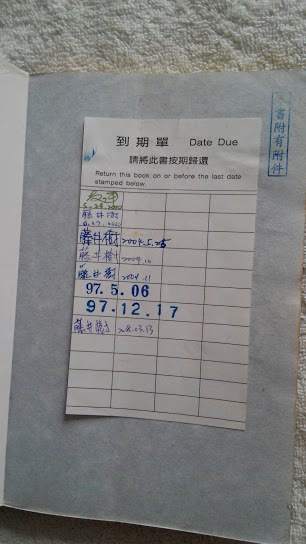 到期單 Date Due
請將此書按期歸還
Return this book on or before the last date
stamped below.
書附有附件
藤井樹
藤井樹 2004.5.25
藤井樹 2004.10
藤井樹 2004.11
97.5.06
97.12.17
藤井樹 208.03.13